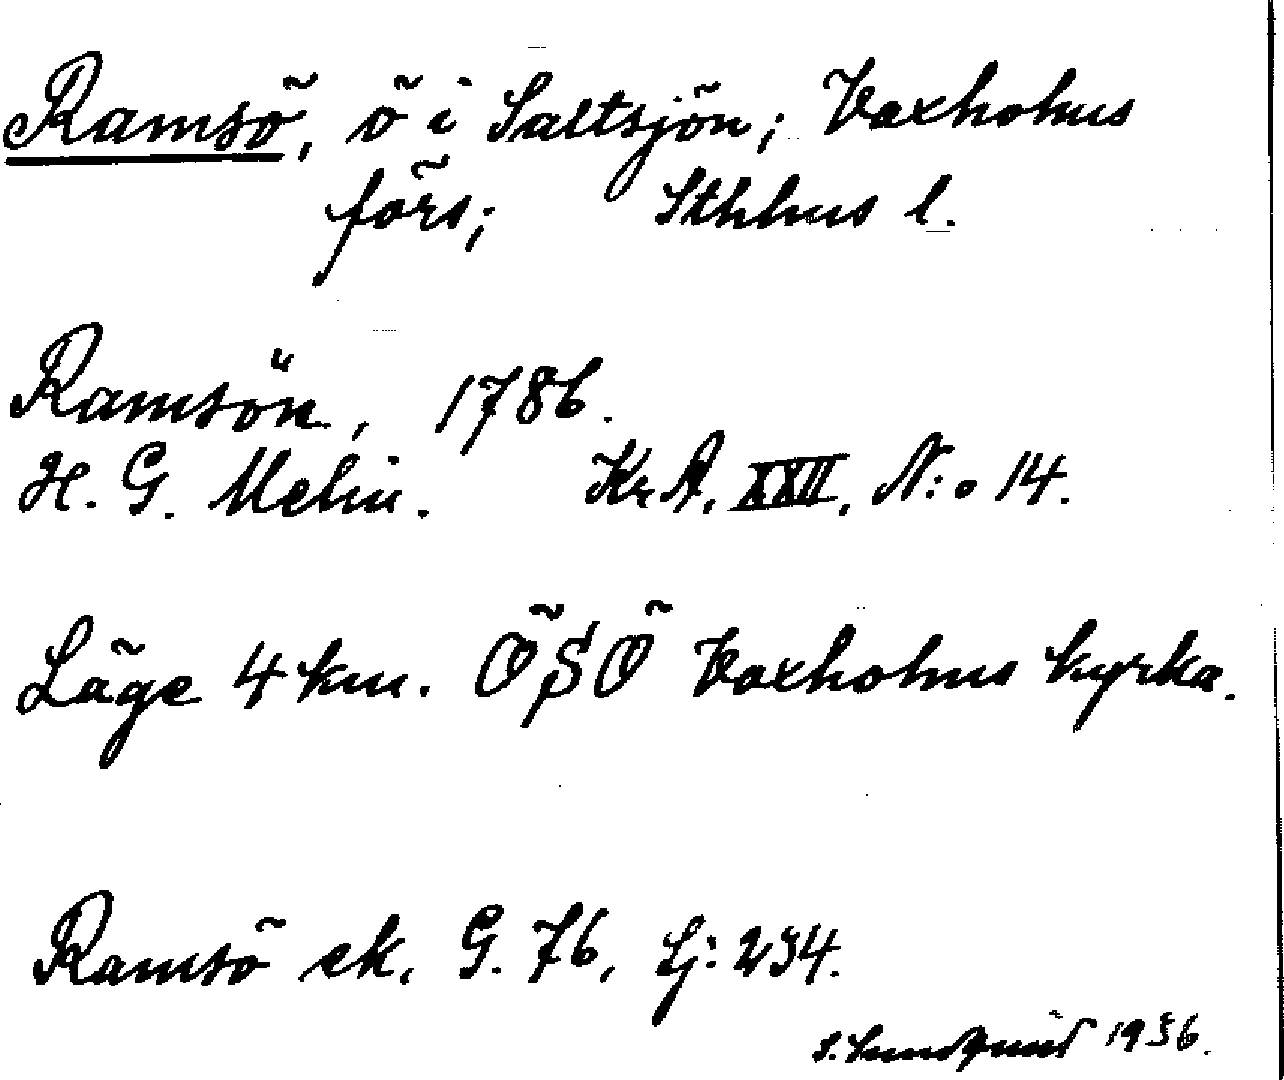 Ramsö, ö i Saltsjön; Vaxholms
förs; Sthlms l.
Ramsön, 1786.
H. G. Melin. Kr A. XXII, N:o 14.
Läge 4 km. ÖSÖ Vaxholms kyrka.
Ramsö ek. G. 76, Lj: 234.
S. Sundquist 1936.